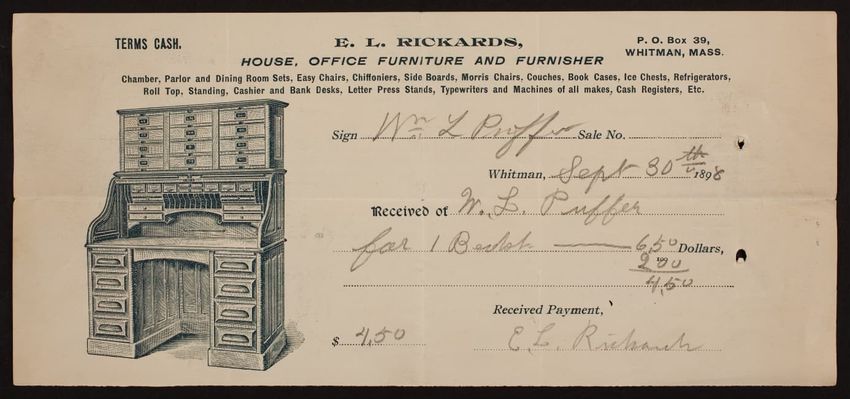 TERMS CASH.
E. L. RICKARDS,
P. O. Box 39,
WHITMAN, MASS.
HOUSE, OFFICE FURNITURE AND FURNISHER
Chamber, Parlor and Dining Room Sets, Easy Chairs, Chiffoniers, Side Boards, Morris Chairs, Couches, Book Cases, Ice Chests, Refrigerators,
Roll Top, Standing, Cashier and Bank Desks, Letter Press Stands, Typewriters and Machines of all makes, Cash Registers, Etc.
Sign Wm L Puffer Sale No.
Whitman, Sept 30th 1898
Received of W. L. Puffer
for 1 6,50 Dollars,
2 00
4,50
Received Payment,
$ 4,50 E. L. Rickards